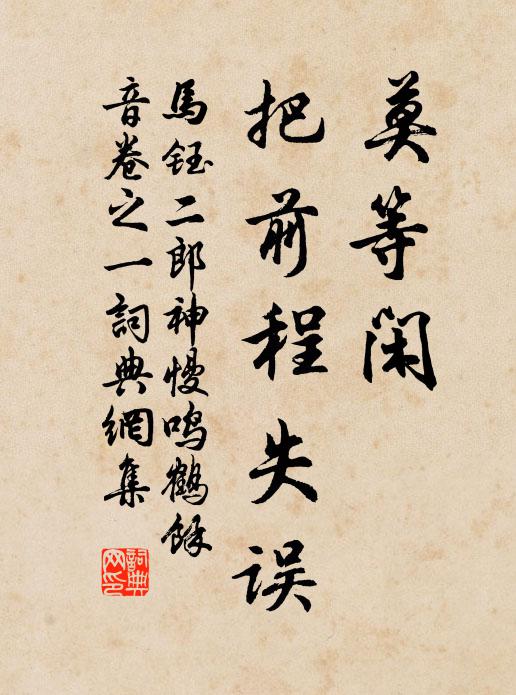 莫等閑
把前程失误
馬鈺二郎神慢鳴鶴餘
音卷之一詞典網集
詞典
网印